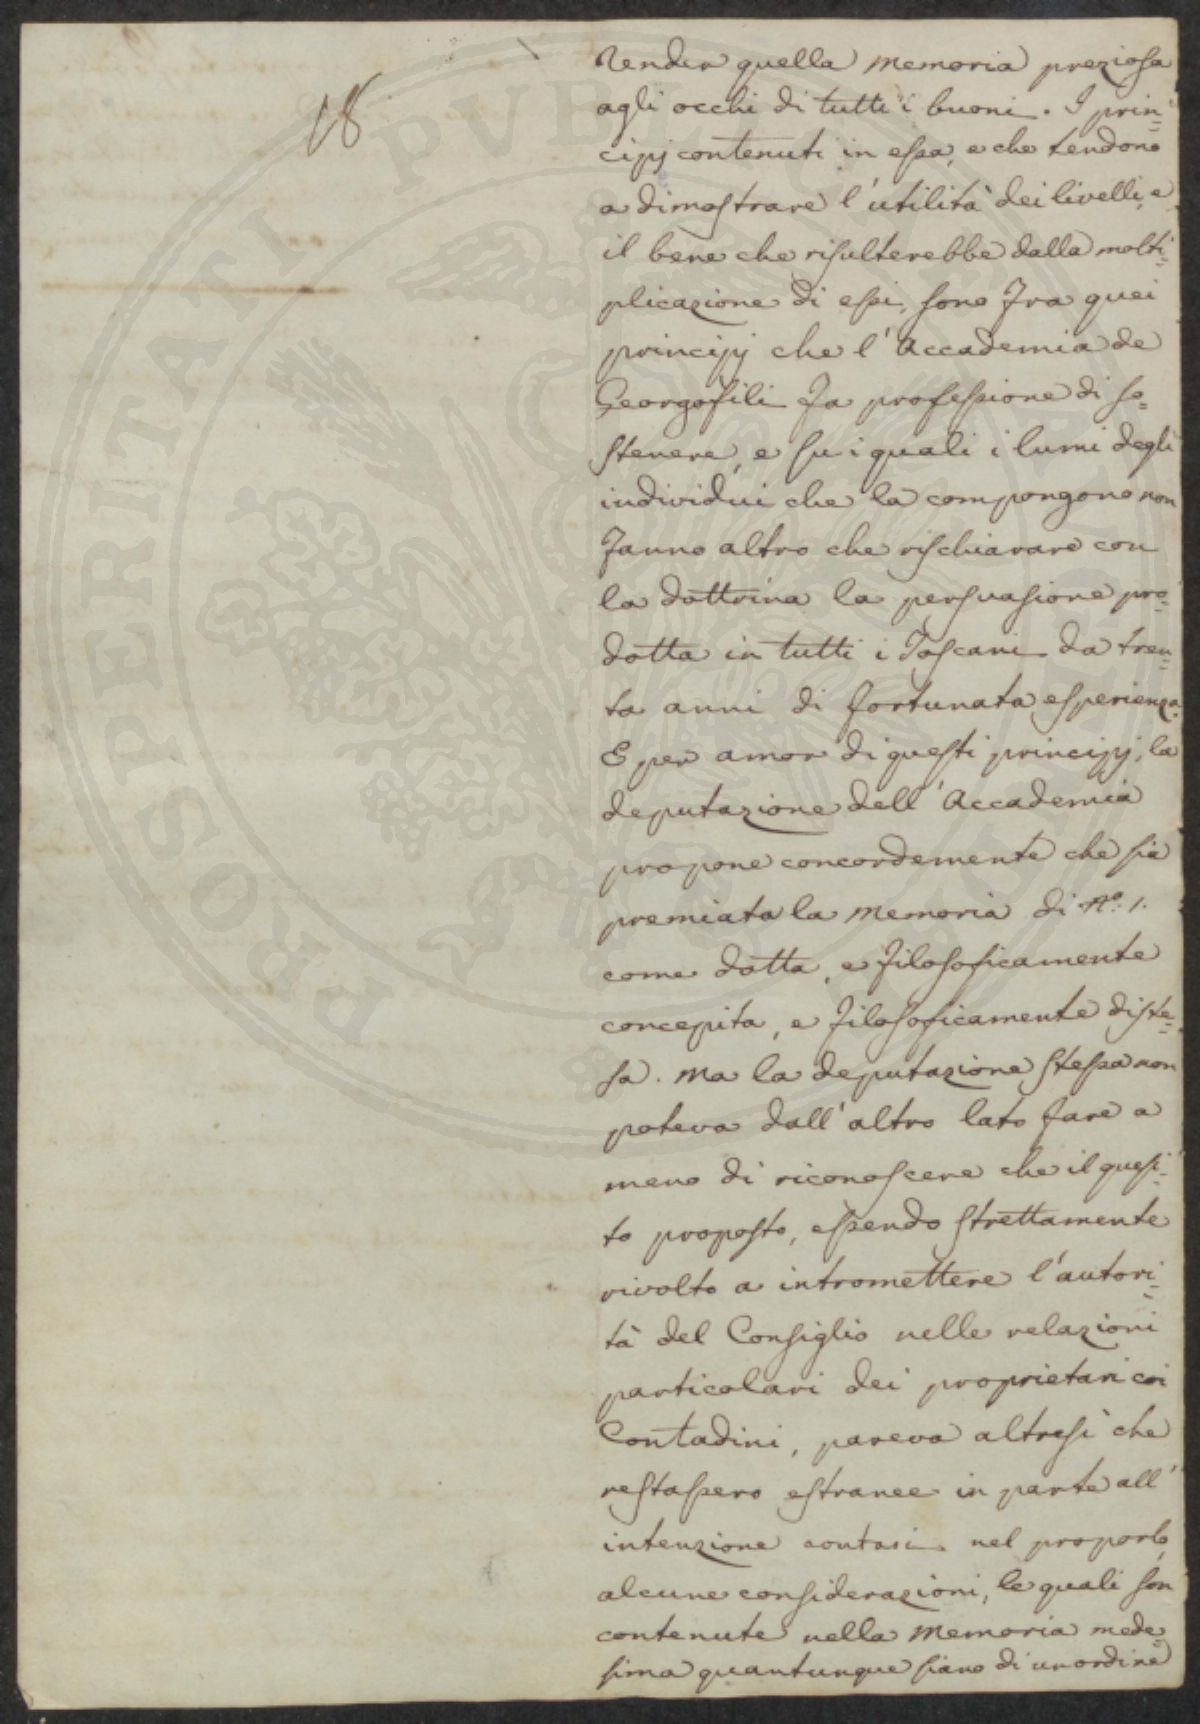 18
render quella memoria preziosa
agli occhi di tutti i buoni. I prin=
cipj contenuti in essa, e che tendono
a dimostrare l'utilità dei livelli, e
il bene che risulterebbe dalla molti=
plicazione di essi, sono fra quei
principj che l'Accademia de
Georgofili fa professione di so=
stenere, e su i quali i lumi degli
individui che la compongono non
fanno altro che rischiarare con
la dottrina la persuasione pro=
dotta in tutti i Toscani da tren=
ta anni di fortunata esperienza.
E per amor di questi principj, la
deputazione dell'Accademia
propone concordemente che sia
premiata la memoria di N.º 1.
come dotta, e filosoficamente
concepita, e filosoficamente diste=
sa. Ma la deputazione stessa non
poteva dall'altro lato fare a
meno di riconoscere che il quesi=
to proposto, essendo strettamente
rivolto a intromettere l'autori=
tà del Consiglio nelle relazioni
particolari dei proprietari coi
Contadini, pareva altresì che
restassero estranee in parte all'
intenzione avutasi nel proporlo,
alcune considerazioni, le quali son
contenute nella Memoria mede=
sima quantunque siano di un ordine
PROSPERITATI PVBLICAE